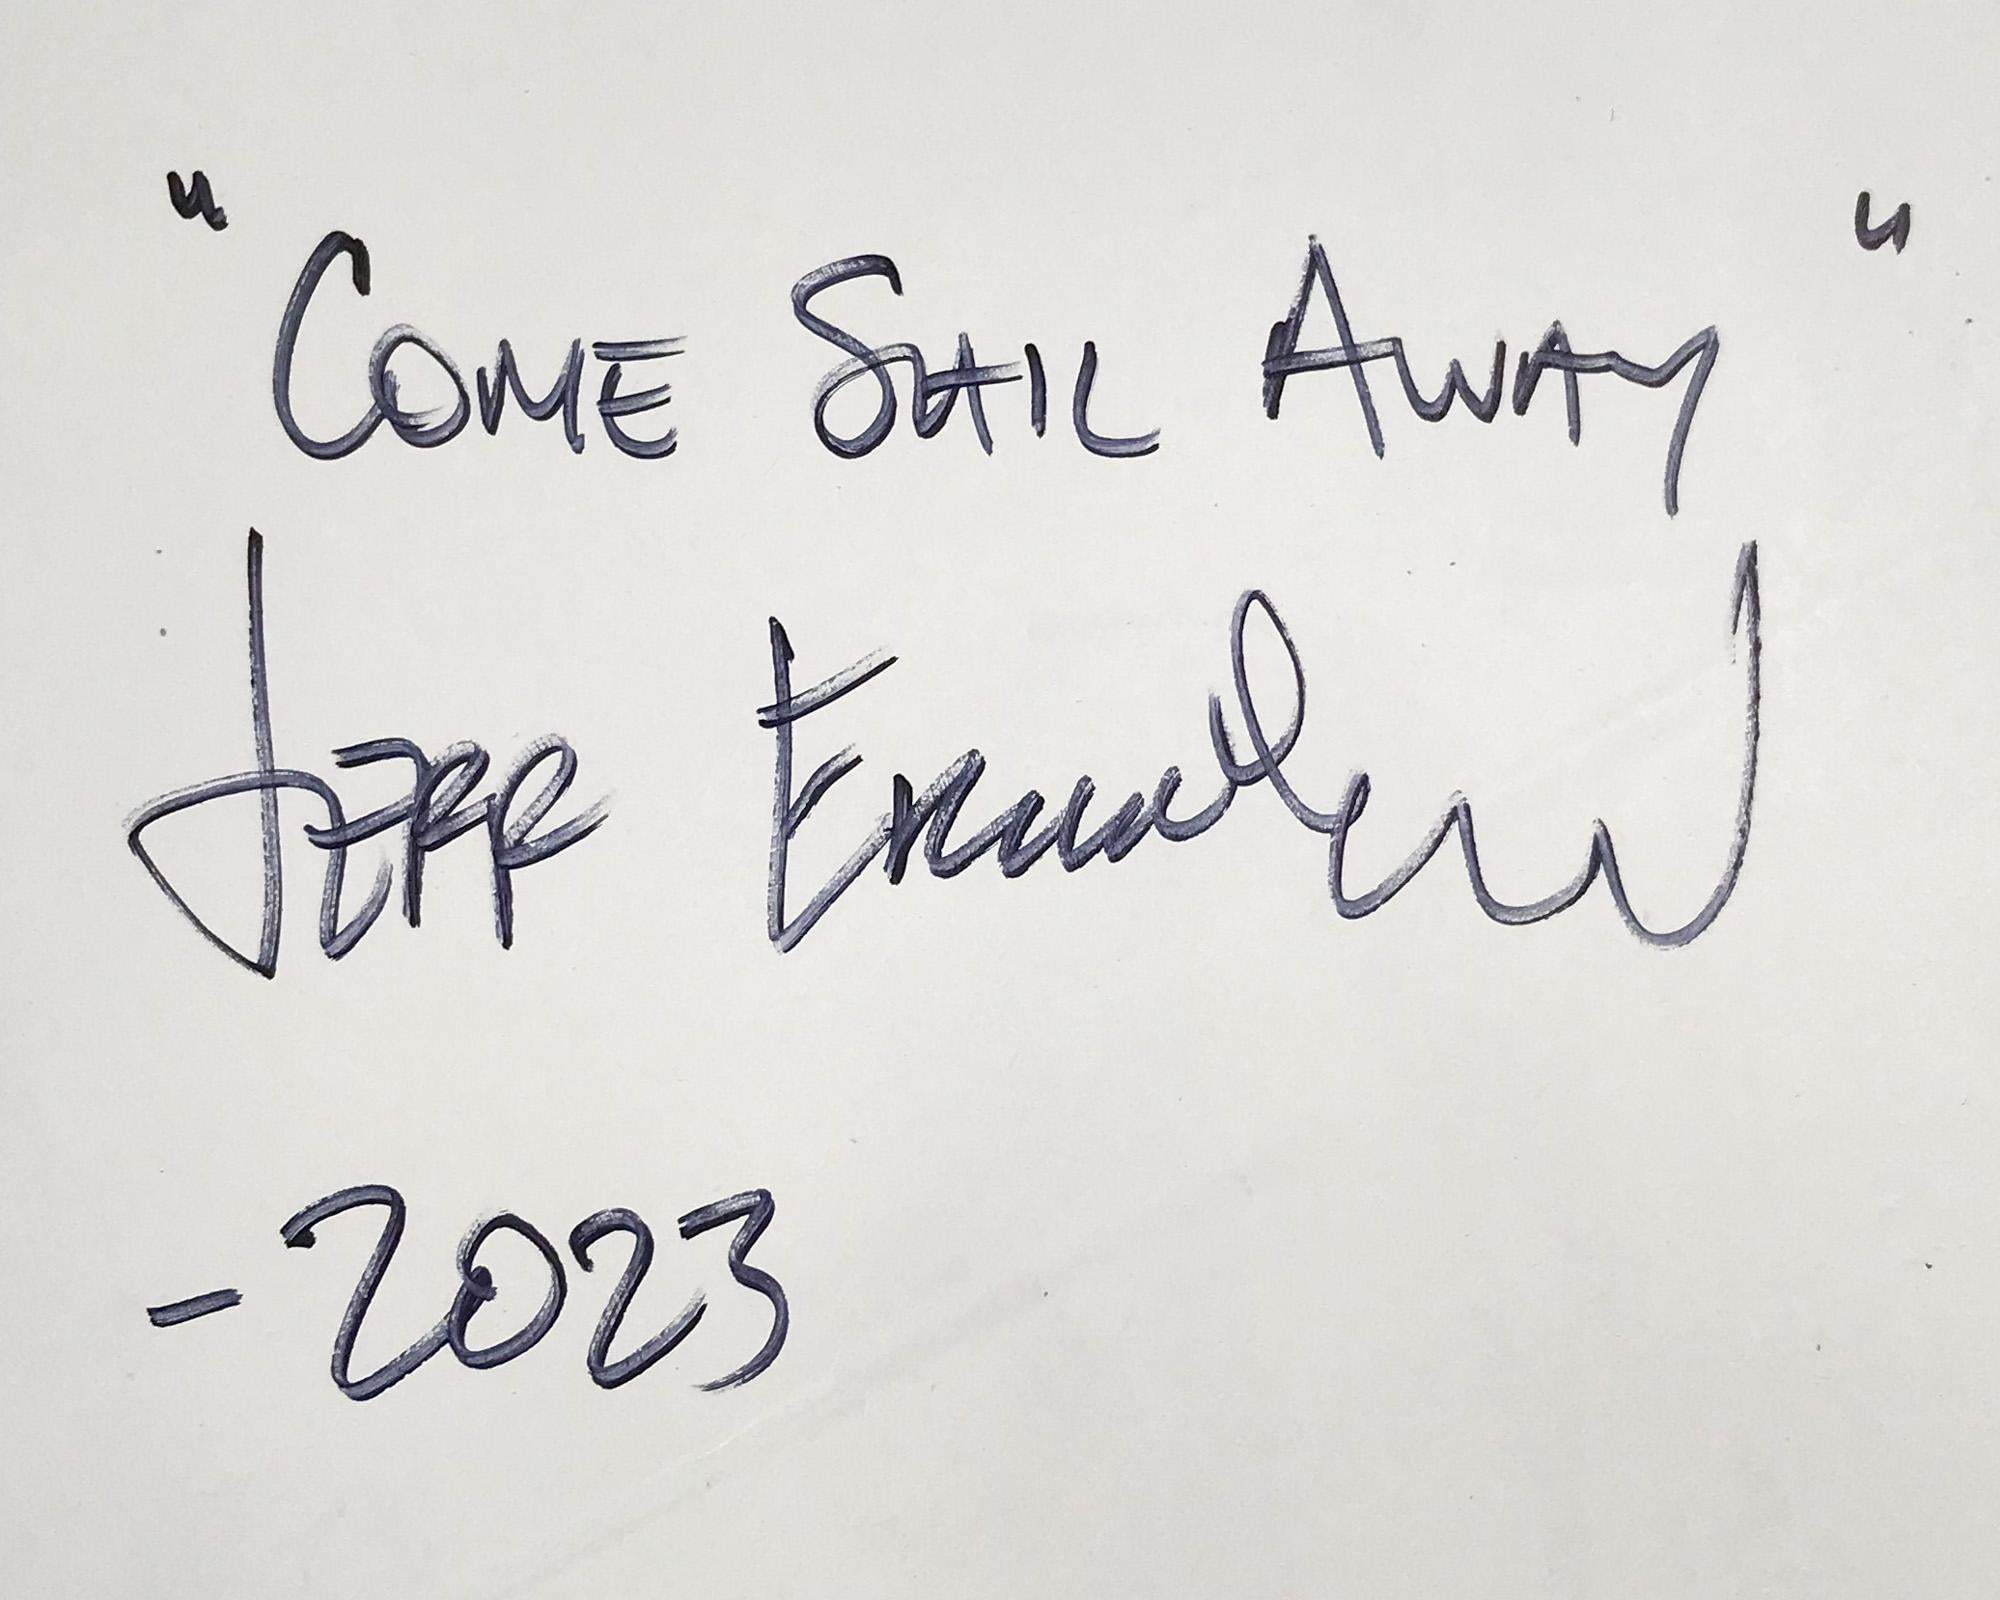 "COME SAIL AWAY"
JEFF
-2023